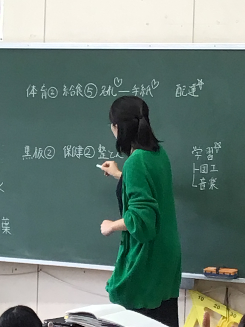 体育② 給食⑤ 名札♡ー手紙♡ 配達☆
黒板② 保健② 整とん 学習☆
├図工
└音楽
葉